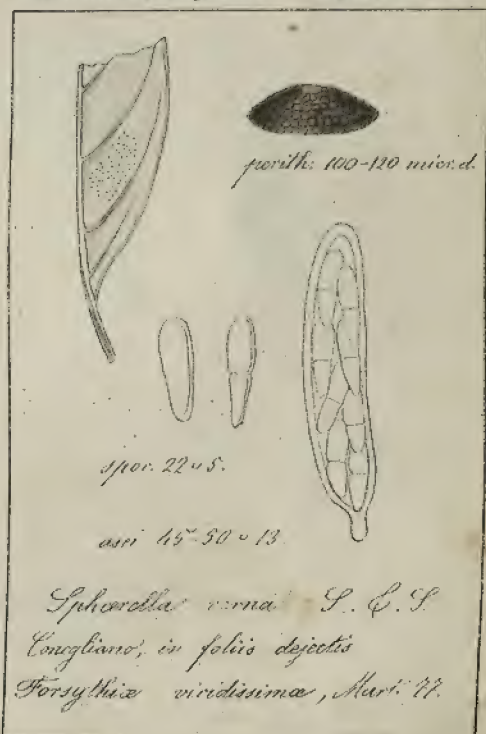 perith: 100-120 micr. d.
spor. 22 ᴗ 5.
asci 45-50 ᴗ 13
Sphærella verna S. E. S.
Conegliano, in foliis dejectis
Forsythiæ viridissimæ, Mart. 77.